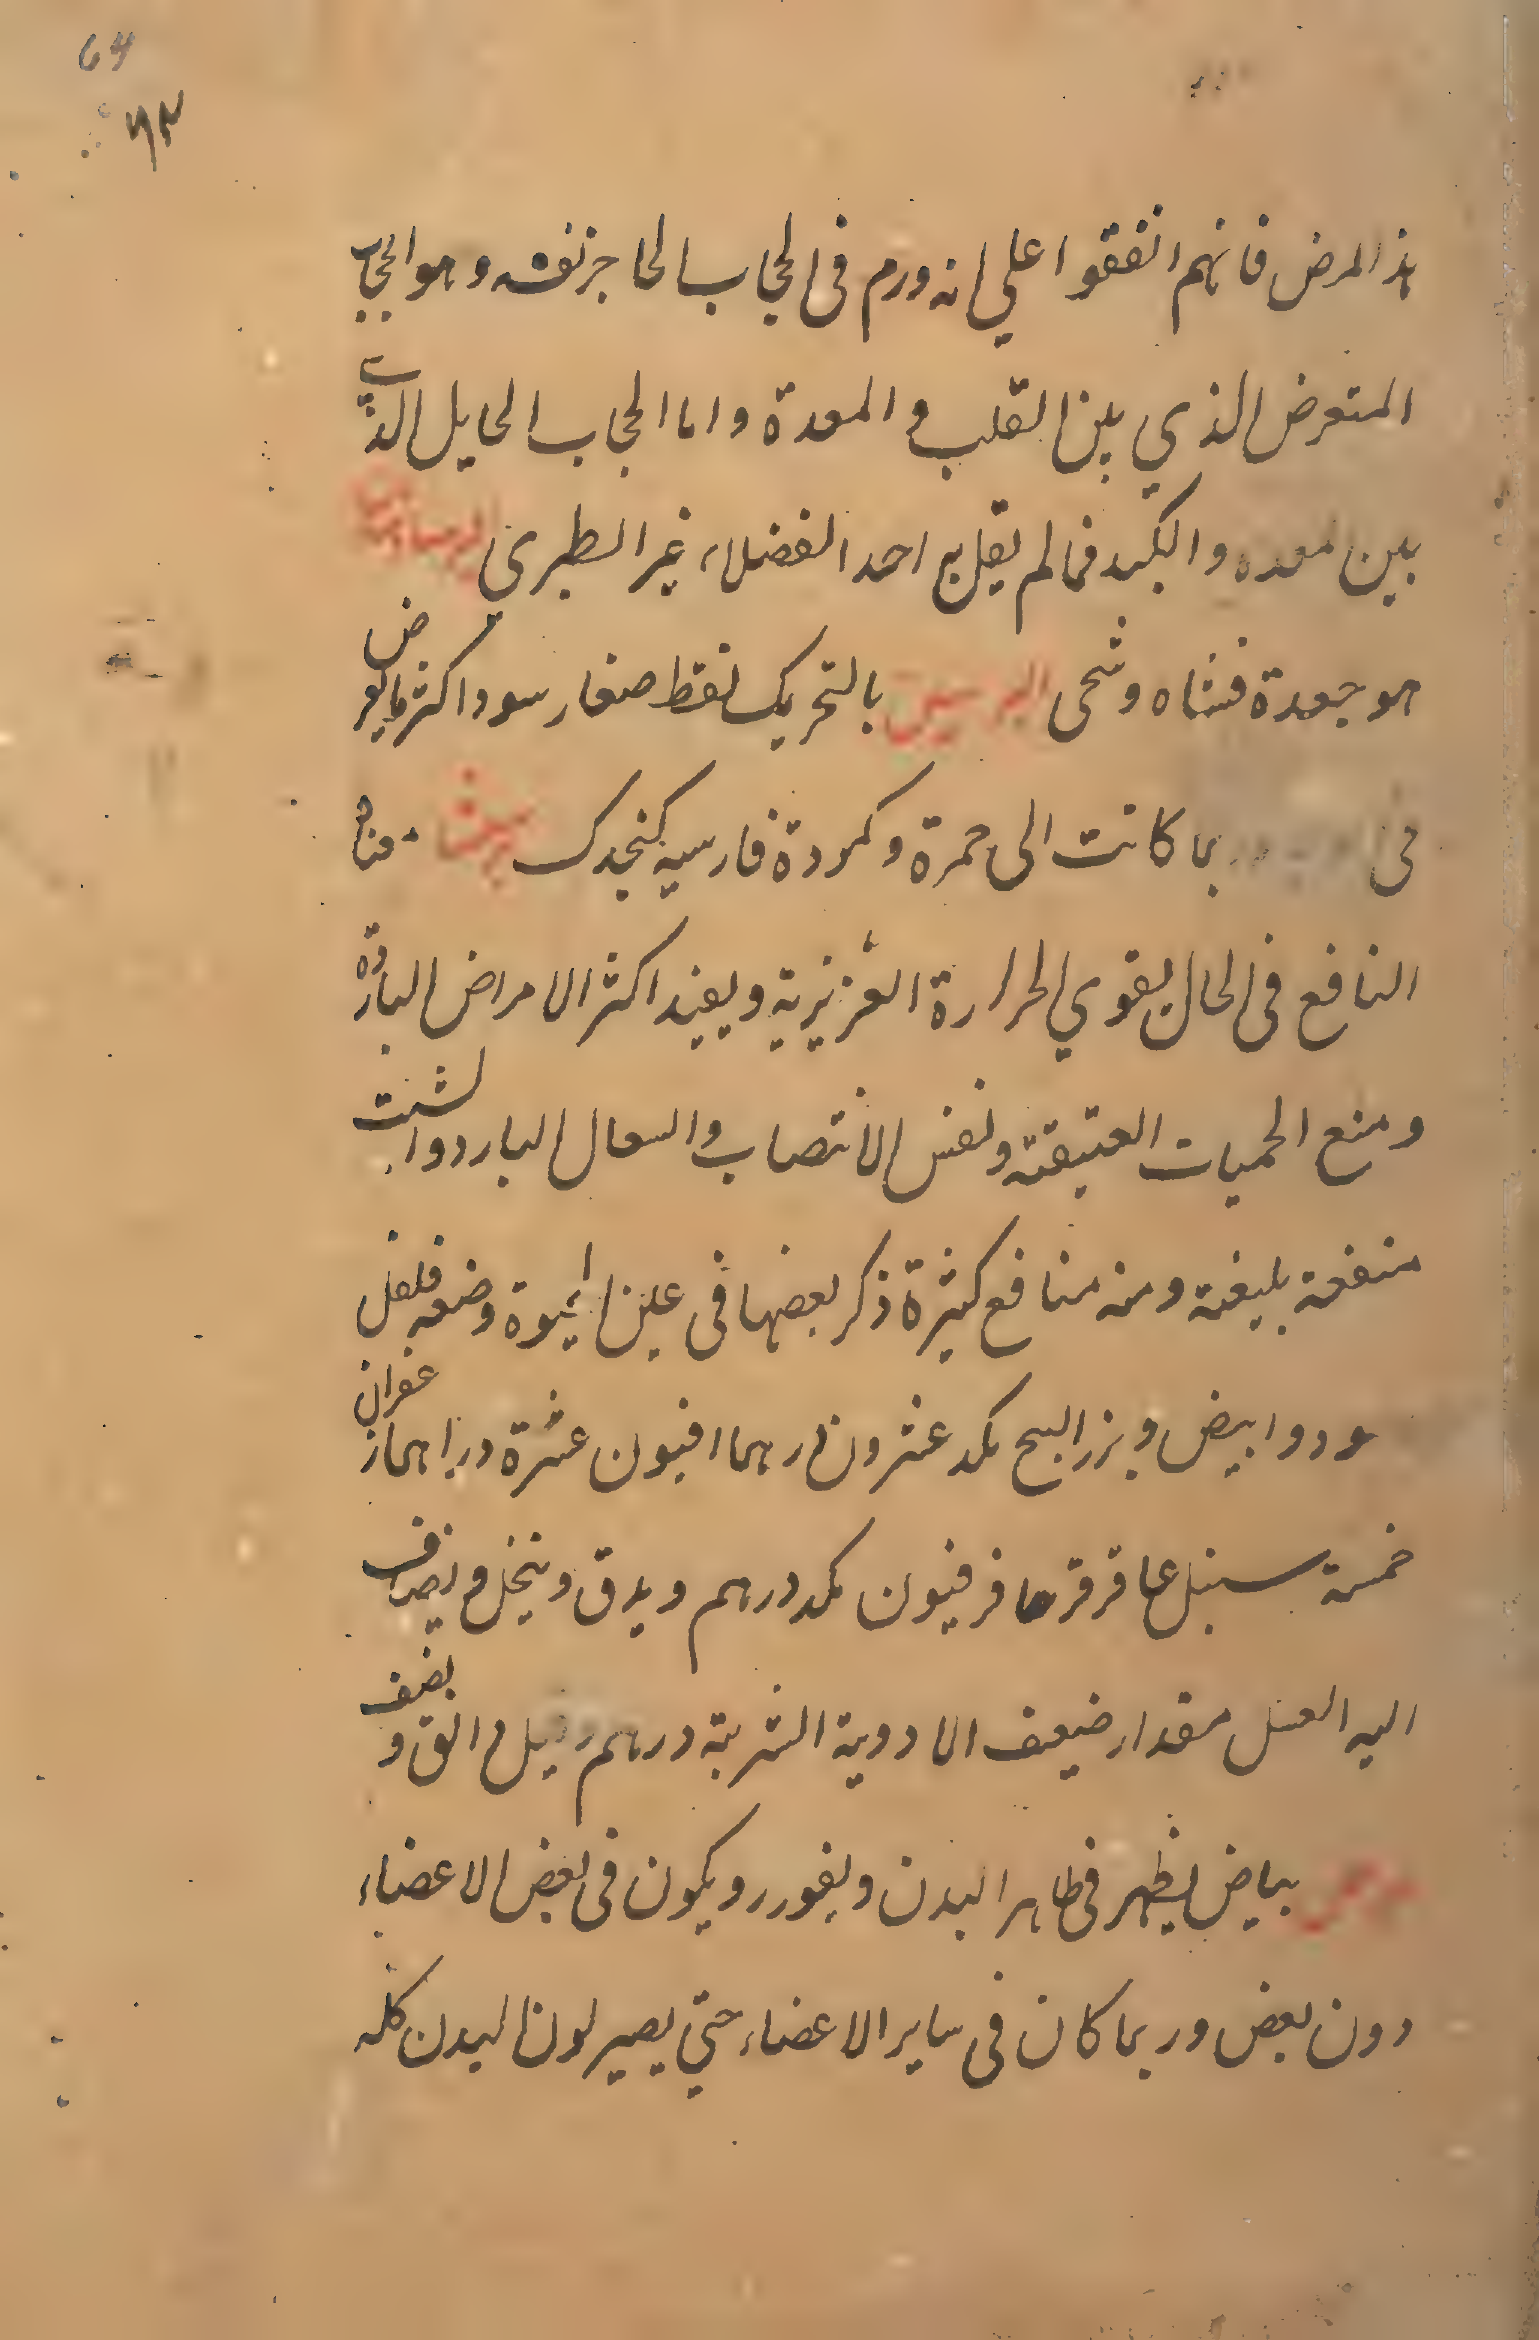 64
۶۴
هذا المرض فانهم اتفقوا علي انه ورم فى الحجاب الحاجز نفسه وهو الحجاب
المتعرض الذي بين القلب و المعدة واما الحجاب الحايل الذي
بين المعده والكبد فمالم يقل به احد الفضلاء غير الطبرى
هو جعدة فنناه وشحى البرش بالتحريك نقط صغار سود اكثر ما يعرض
فى الوجه وربما كانت الى حمرة وكمودة فارسيه كنجدك برشعثا معناه
النافع فى الحال يقوي الحرارة الغريزية ويفيد اكثر الامراض الباردة
ومنع الحميات العتيقة ونفس الانتصاب والسعال البارد والشبت
منفعة بليغة ومنه منافع كثيرة ذكر بعضها فى عين الحيوة وضعه فلفل
سود وابيض وبزر البنج مكد عشرون درهما افيون عشرة دراهم زعفران
خمسة سنبل عاقرقرحا فرفيون مكد درهم ويدق وينخل ويضاف
اليه العسل مقدار ضيعف الادوية الشربة درهم وقيل دانق ونصف
برص بياض يظهر فى ظاهر البدن ويغور ويكون فى بعض الاعضاء
دون بعض وربما كان فى ساير الاعضاء حتي يصير لون البدن كله